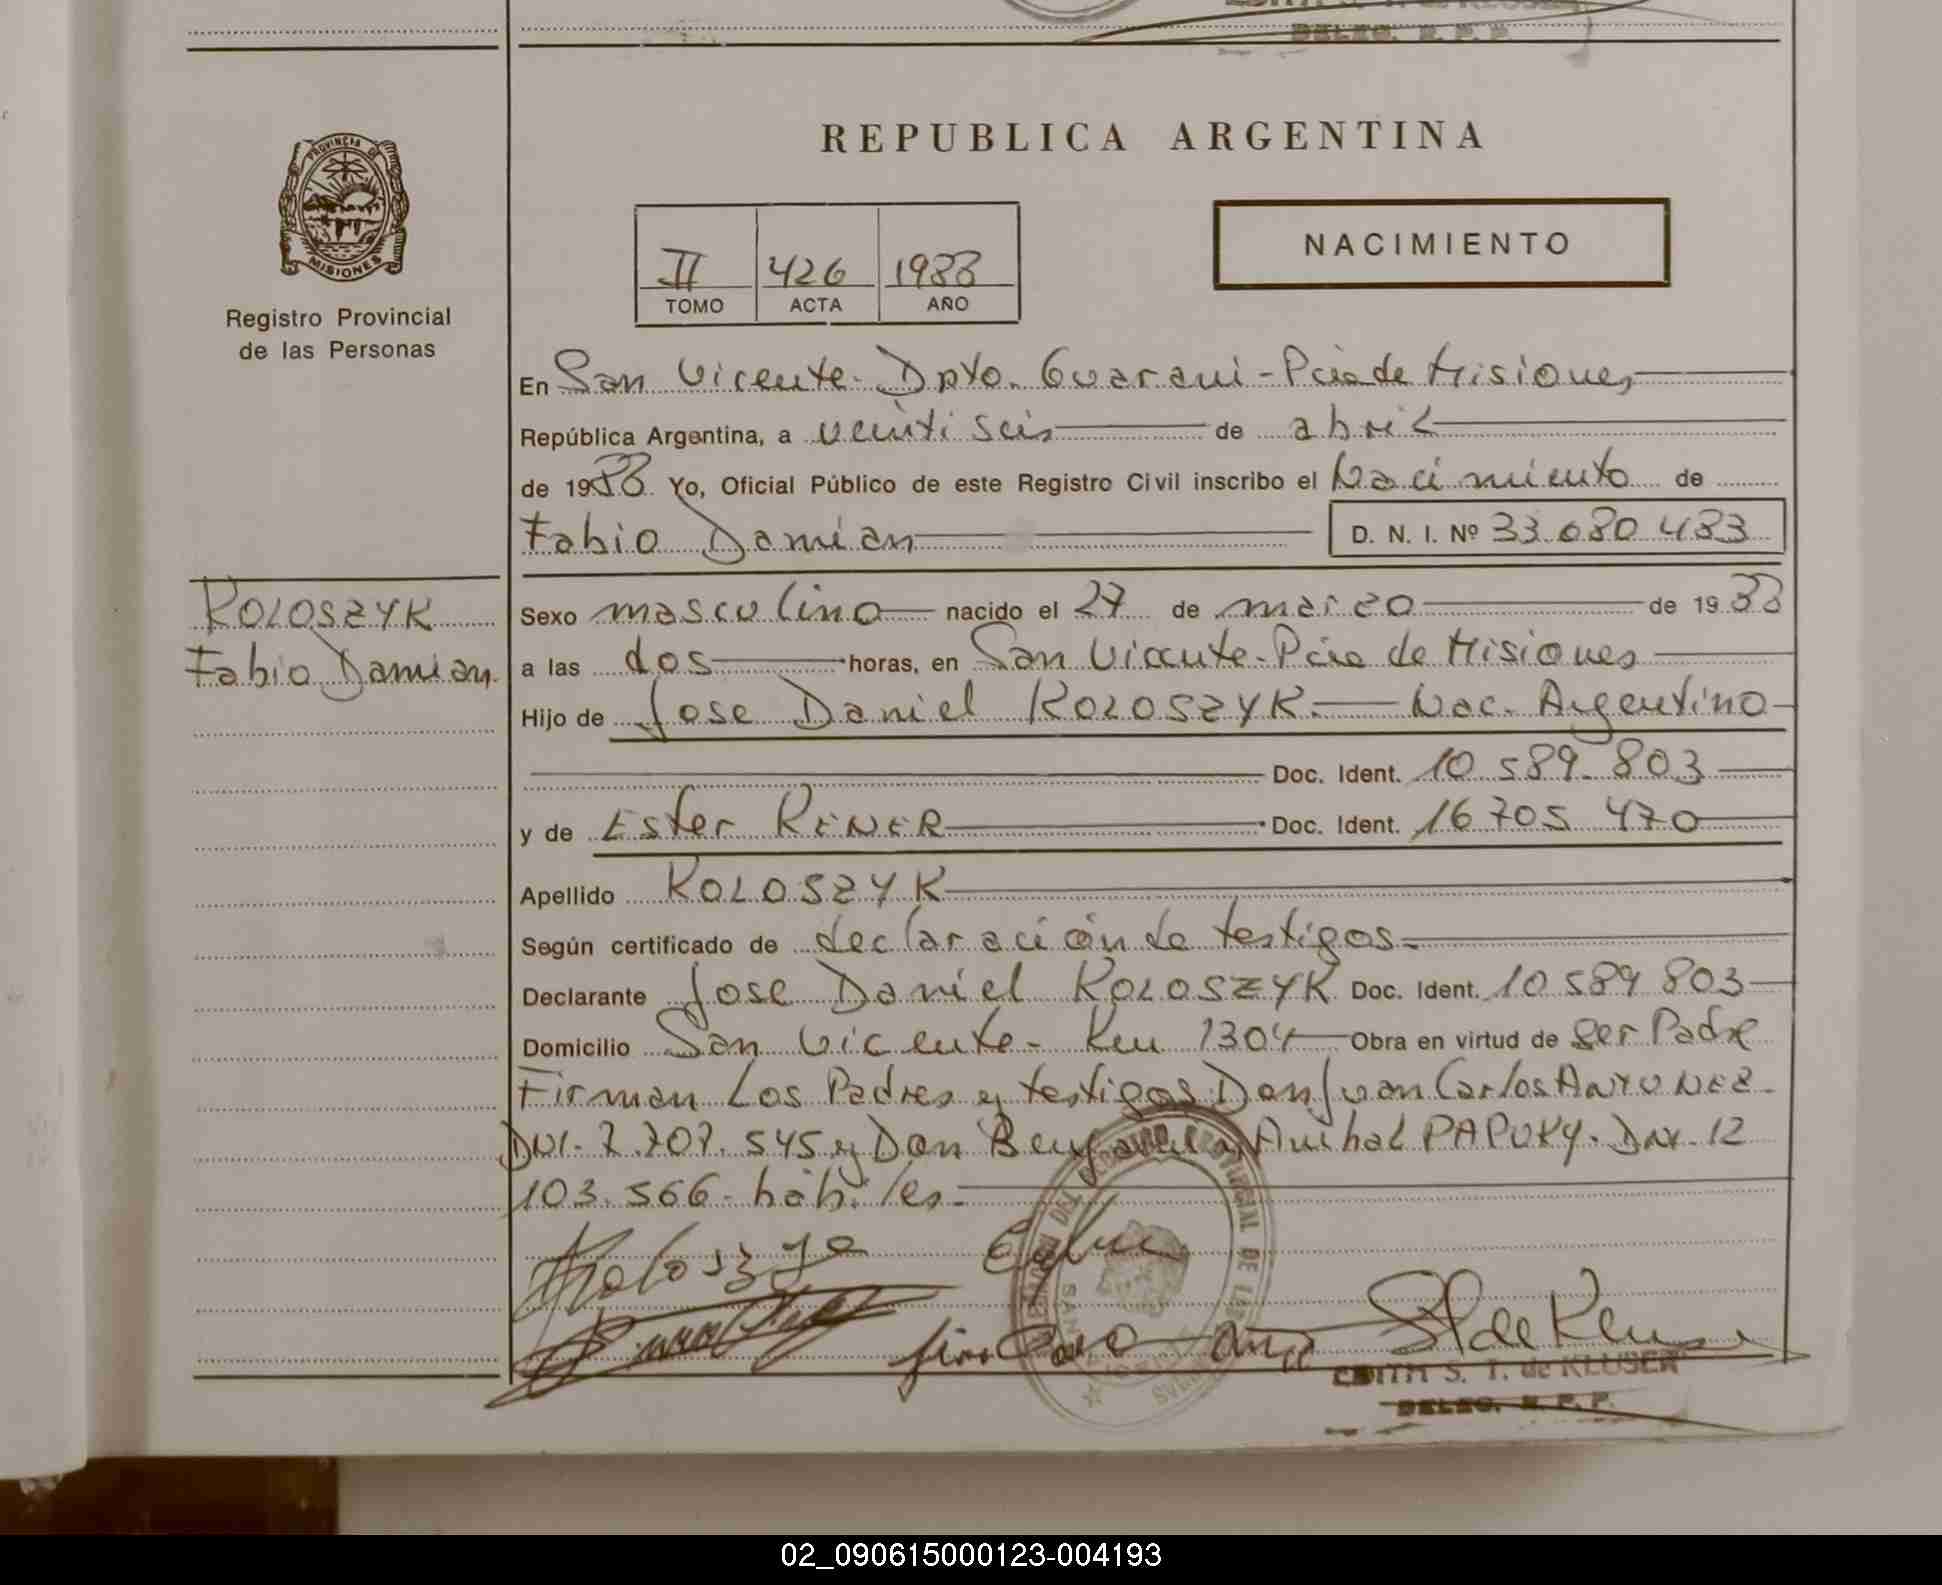 DELEG. R. P. P.
REPUBLICA ARGENTINA
PROVINCIA DE MISIONES
Registro Provincial
de las Personas
II 426 1988
TOMO ACTA AÑO
NACIMIENTO
En San Vicente - Dpto. Guarani - Pcia de Misiones
República Argentina, a veinti seis de abril
de 1988 Yo, Oficial Público de este Registro Civil inscribo el Nacimiento de
Fabio Damian D. N. I. Nº 33.680.483
KOLOSZYK
Fabio Damian
Sexo masculino nacido el 27 de marzo de 1988
a las dos horas, en San Vicente - Pcia de Misiones
Hijo de Jose Daniel KOLOSZYK. Nac. Argentino
Doc. Ident. 10.589.803
y de Ester RENER Doc. Ident. 16 705 470
Apellido KOLOSZYK
Según certificado de declaración de testigos
Declarante Jose Daniel KOLOSZYK Doc. Ident. 10 589 803
Domicilio San Vicente - Km 1304 Obra en virtud de ser Padre
Firman Los Padres y testigos Don Juan Carlos ANTUNEZ
DNI. 7.707.545 y Don Anibal PAPUKY. DNI. 12
103.566 - hábiles
EDITH S. T. de KLUSER
DELEG. R. P. P.
02_090615000123-004193